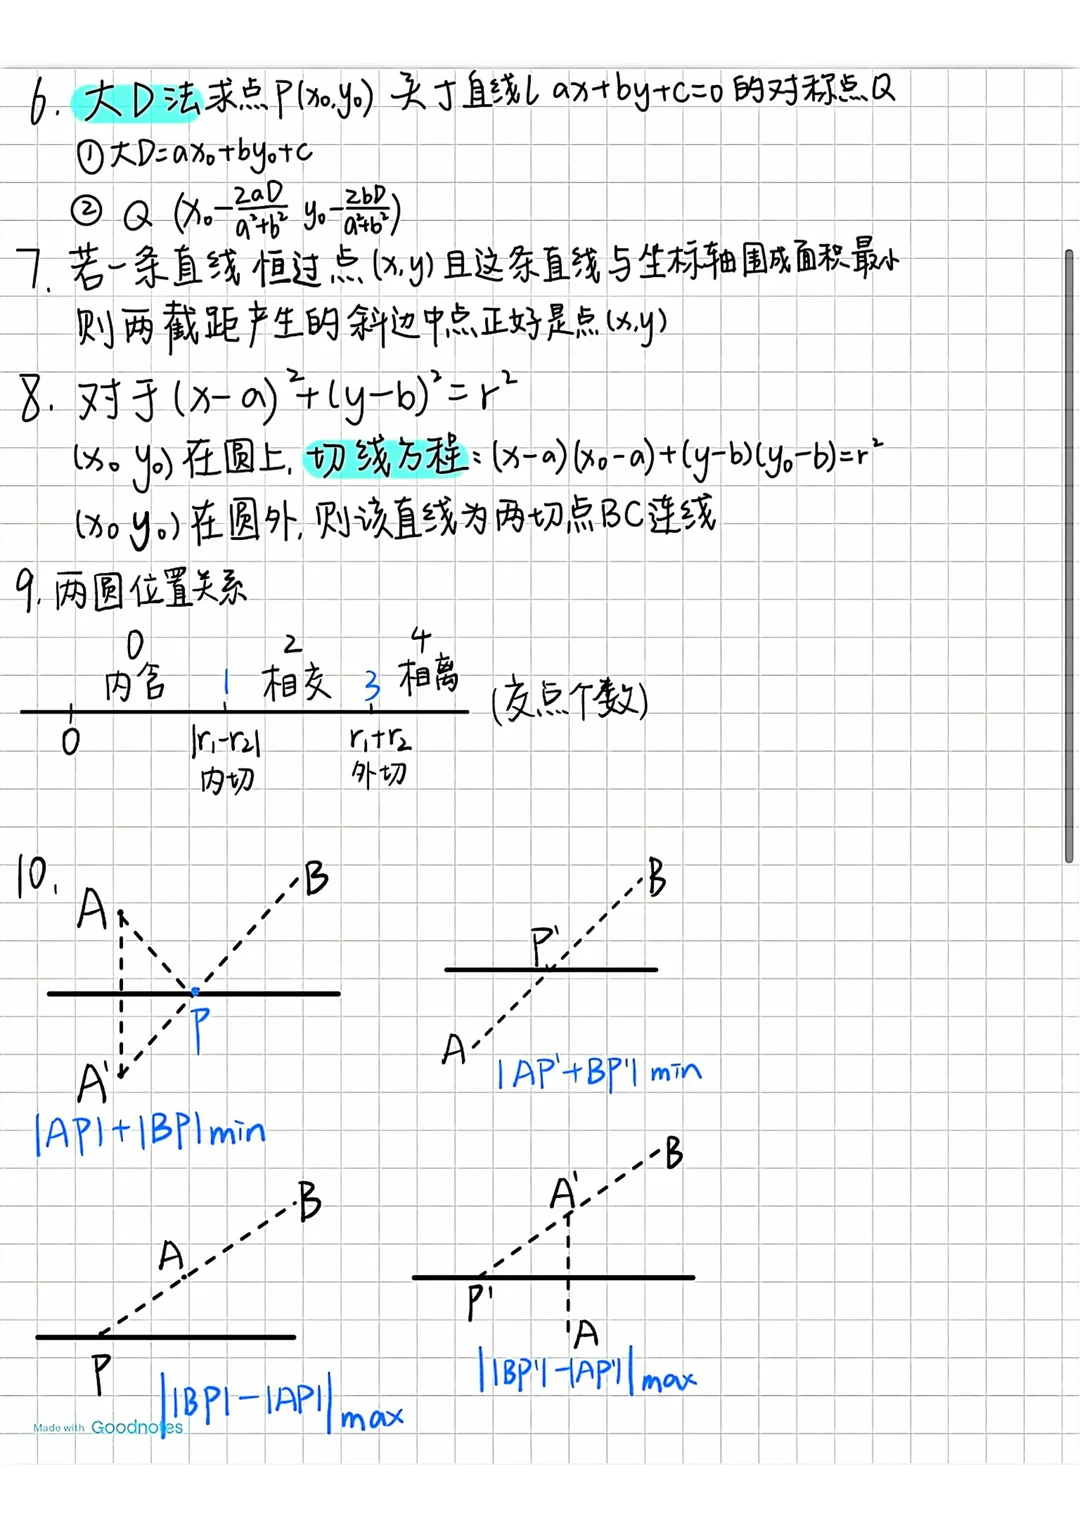 6. 大D法求点P(x₀,y₀) 关于直线l ax+by+c=0的对称点Q
①大D=ax₀+by₀+c
② Q (x₀-2aD/a²+b² y₀-2bD/a²+b²)
7. 若一条直线恒过点(x,y)且这条直线与坐标轴围成面积最小
则两截距产生的斜边中点正好是点(x,y)
8. 对于(x-a)²+(y-b)²=r²
(x₀ y₀)在圆上,切线方程:(x-a)(x₀-a)+(y-b)(y₀-b)=r²
(x₀ y₀)在圆外,则该直线为两切点BC连线
9. 两圆位置关系
0 2 4
内含 1 相交 3 相离 (交点个数)
0 |r₁-r₂| r₁+r₂
内切 外切
10.
A B
P
A'
|AP|+|BP|min
B
P'
A
|AP'+BP'|min
B
A
P
||BP|-|AP||max
B
A'
P'
A
||BP'|-|AP'||max
Made with Goodnotes